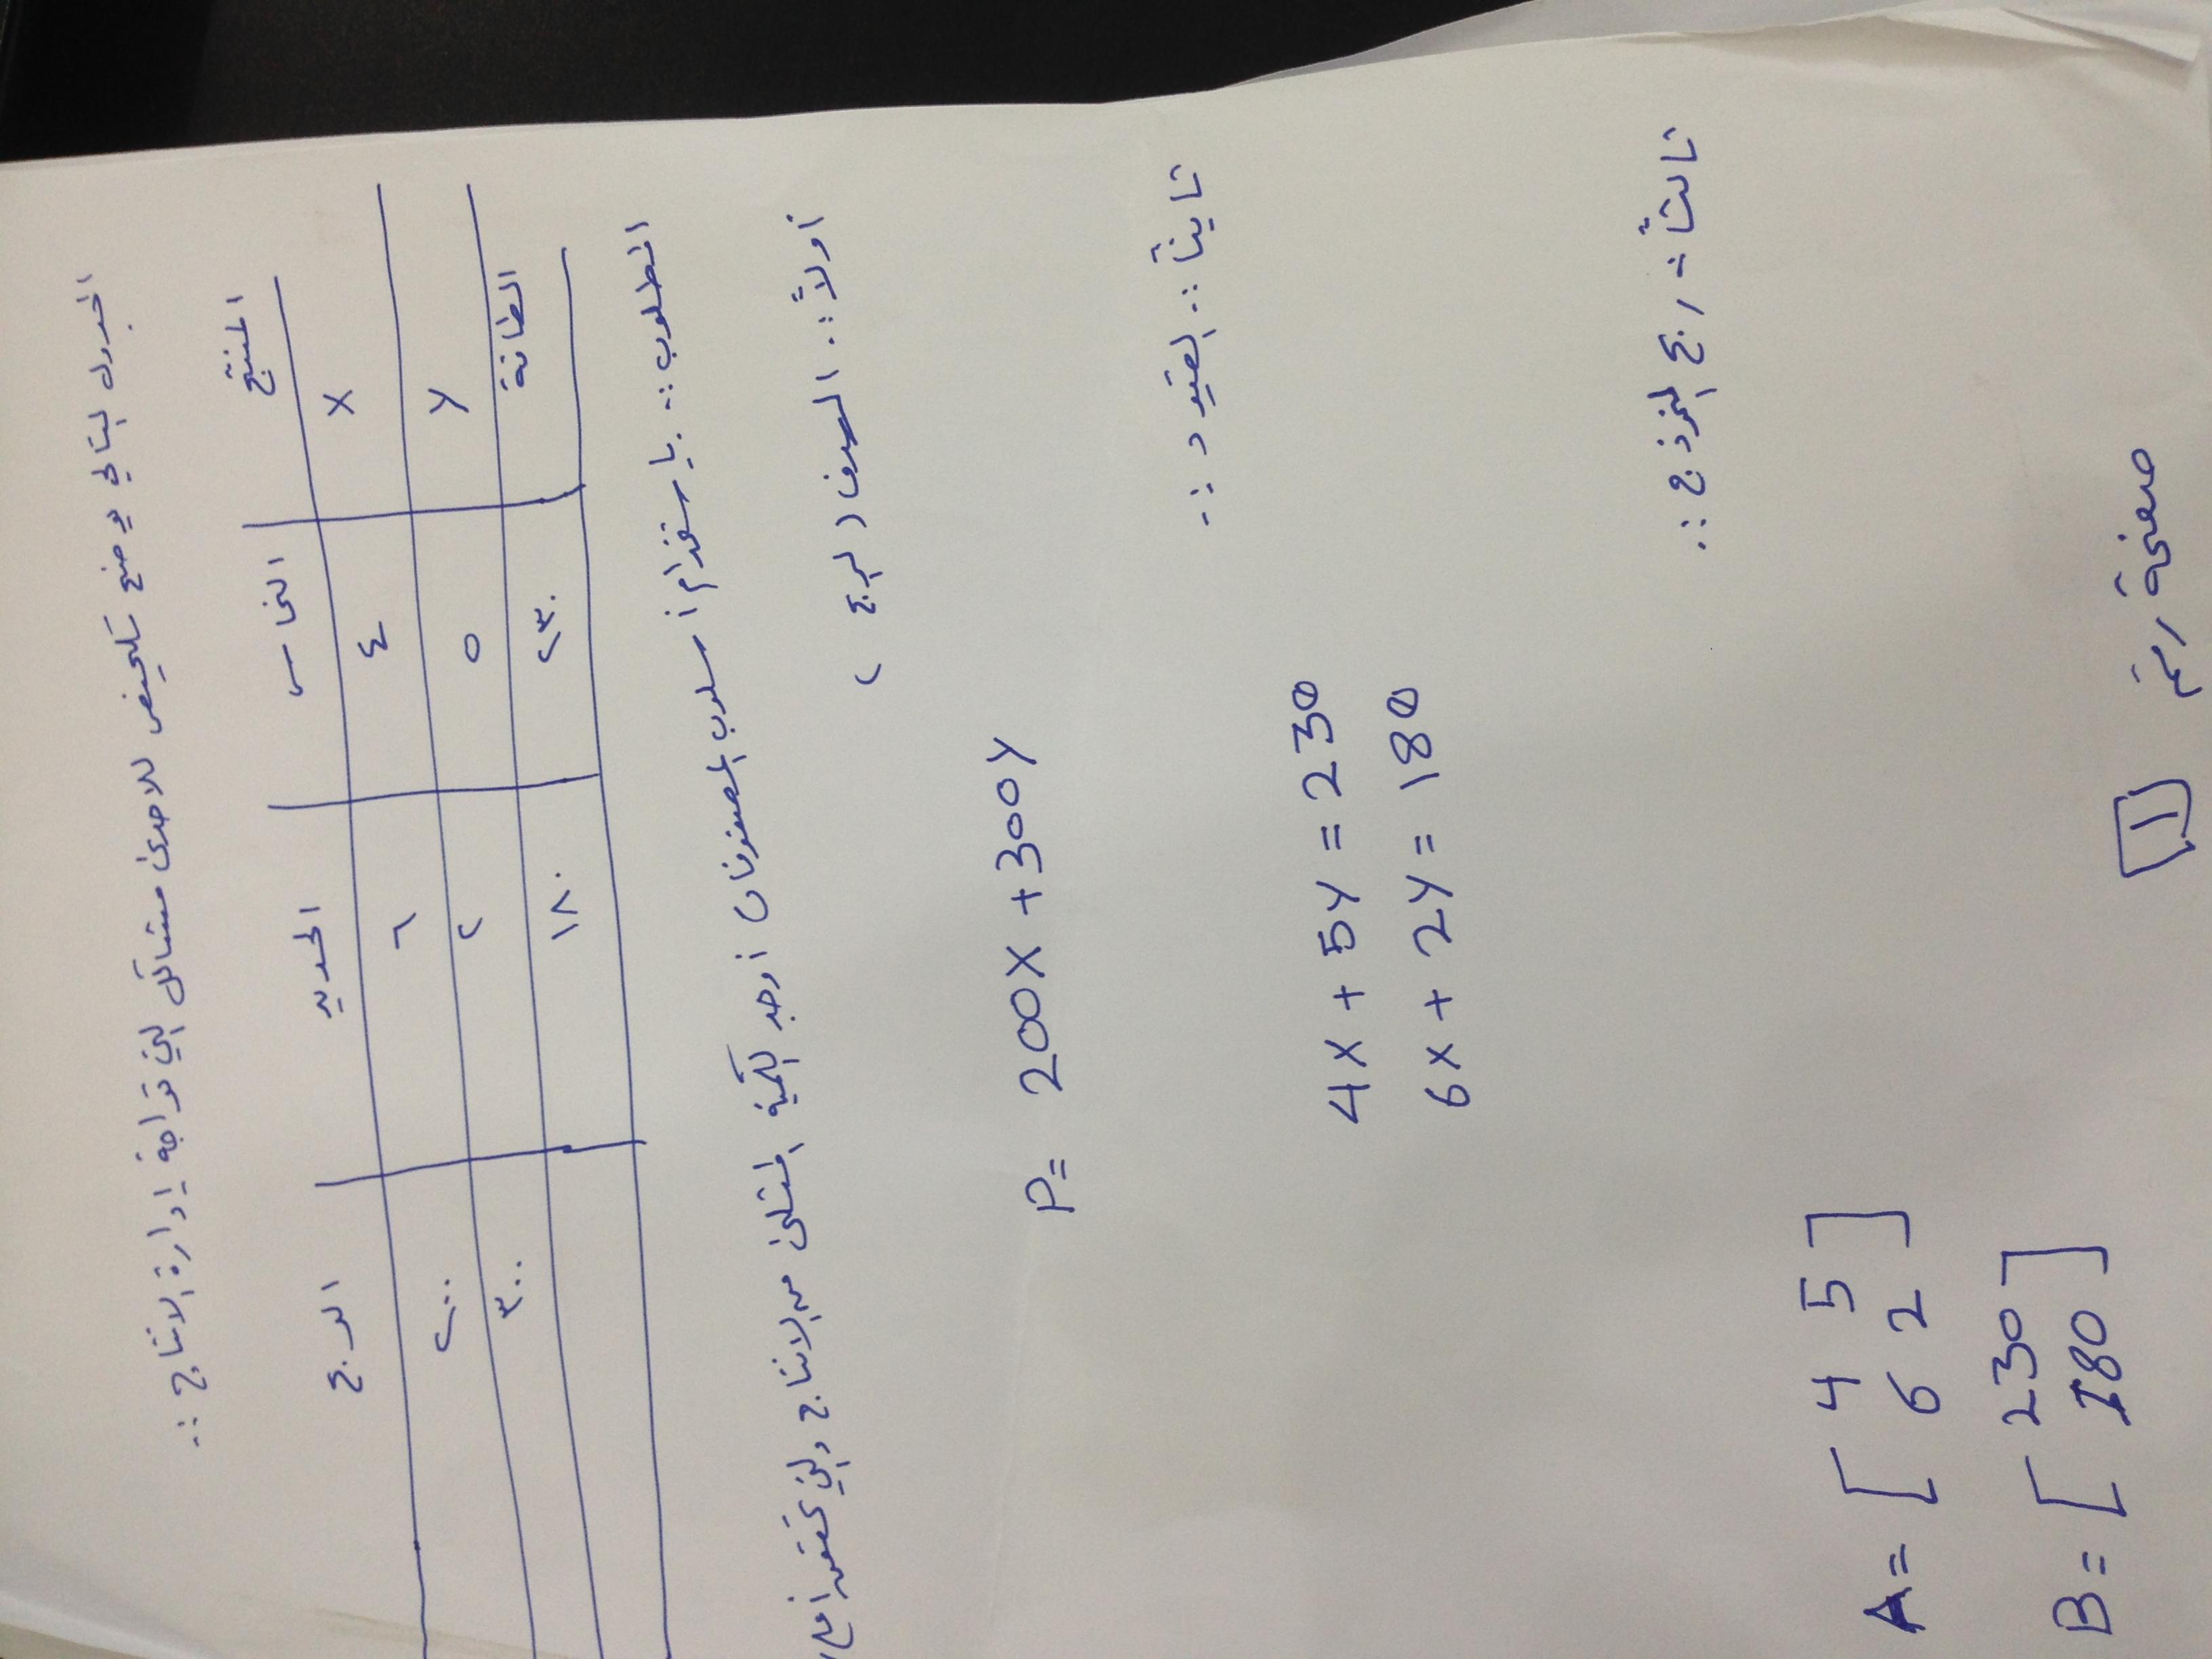 الجدول التالي يوضح تلخيص لاحدى مشاكل التي تواجة إدارة الانتاج :-
المنتج النحاس الحديد الربح
X ٤ ٦ ٢٠٠
Y ٥ ٢ ٣٠٠
الطاقة ٢٣٠ ١٨٠
المطلوب :- بإستخدام أسلوب المصفوفات أوجد الكمية المثلى من الانتاج والتي تحقق
أولاً :- الهدف (الربح)
P= 200X + 300Y
ثانياً :- القيود :-
4X + 5Y = 230
6X + 2Y = 180
ثالثاً :- ربح النموذج :-
A= [ 4 5
6 2 ]
B= [ 230
180 ]
صفحة رقم 1